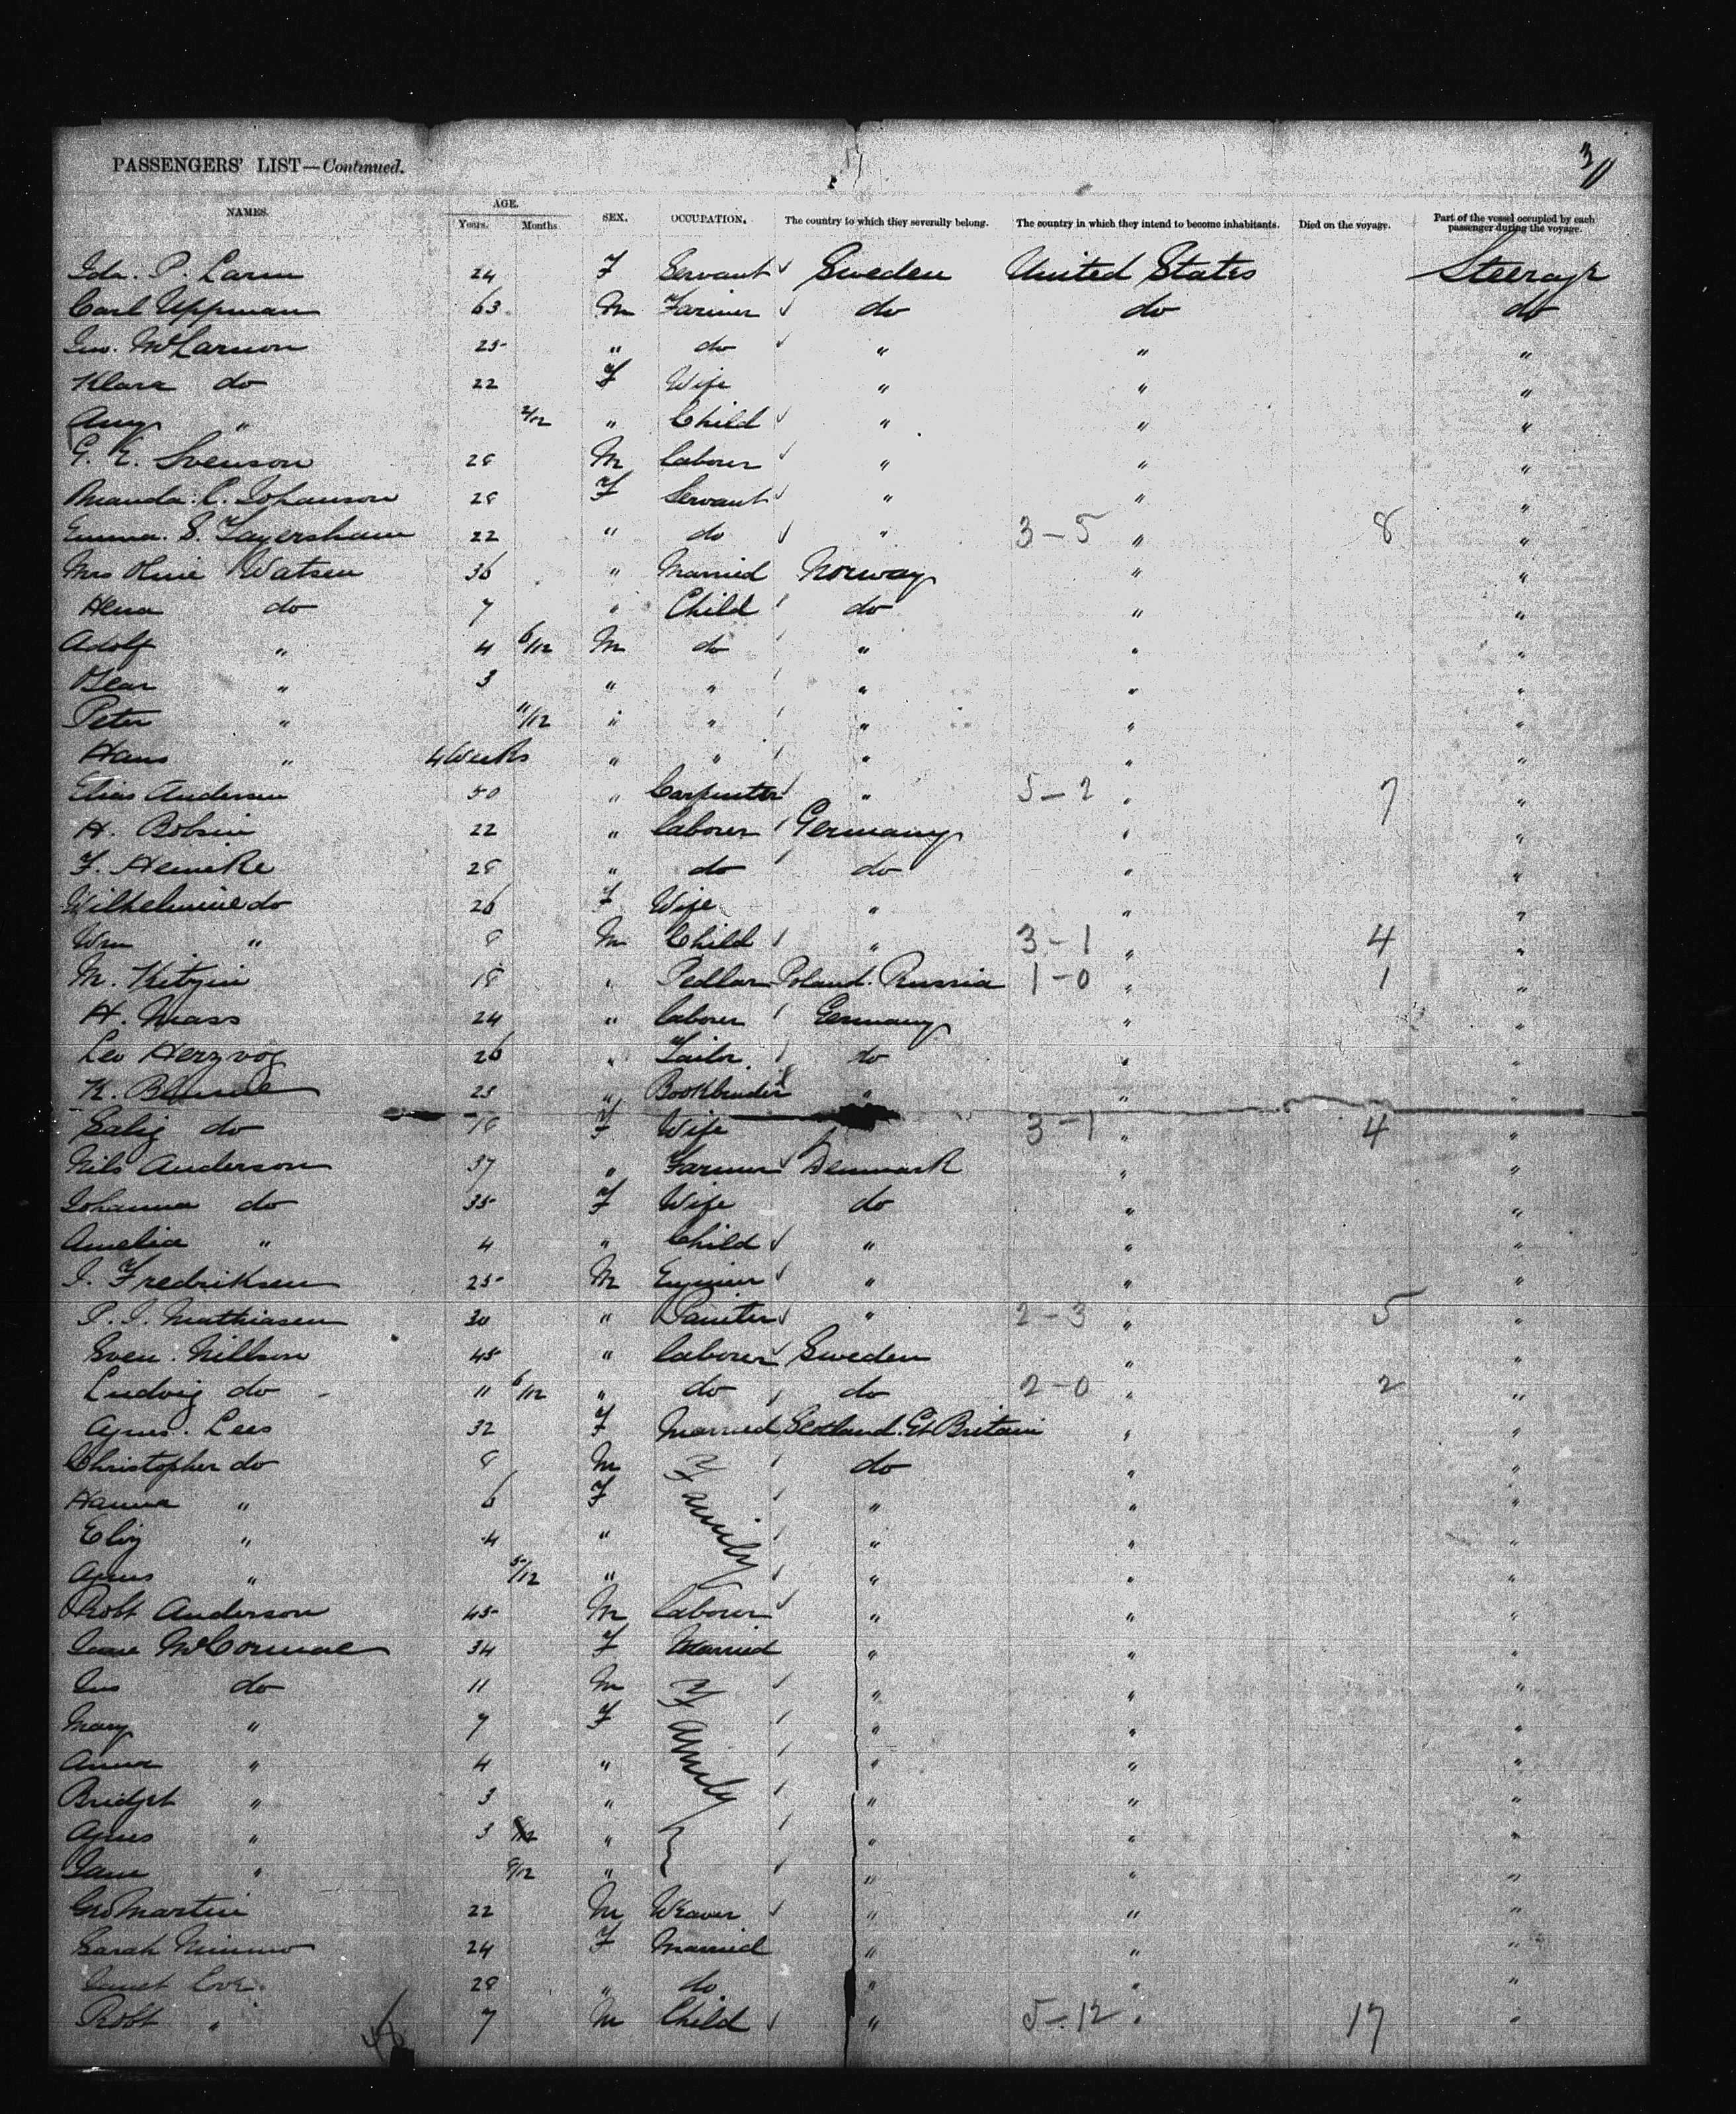 30
PASSENGERS' LIST—Continued.
NAMES. AGE. Years. Months SEX. OCCUPATION. The country to which they severally belong. The country in which they intend to become inhabitants. Died on the voyage. Part of the vessel occupied by each passenger during the voyage.
Ida. P. Larm 24 F Servant Sweden United States Steerage
Carl Uppman 63 M Farmer do do do
Jno. McLarnon 25 " do " " "
Klara do 22 F Wife " " "
Amy " 2/12 " Child " " "
G. E. Svenson 28 M laborer " " "
Amanda. C. Johanson 28 F Servant " " "
Emma. S. 22 " do " 3-5 " 8 "
Mrs Olivie Watsen 36 " Married Norway " "
Hena do 7 " Child do " "
Adolf " 4 6/12 M do " " "
Oscar " 3 " " " " "
Peter " 11/12 " " " " "
Hans " 4 Weeks " " " " "
Elias Andersen 50 " Carpenter " 5-2 " 7 "
H. Bobsin 22 " laborer Germany " "
F. Heineke 28 " do do " "
Wilhelmine do 26 F Wife " " "
Wm " 8 M Child " 3-1 " 4 "
M. 18 " Pedlar Poland. Russia 1-0 " 1 "
H. Maass 24 " laborer Germany " "
Leo Herzvog 26 " Tailor do " "
K. 23 " Bookbinder " " "
Salig do 18 F Wife 3-1 " 4 "
Nils Anderson 37 " Farmer Denmark " "
Johanna do 35 F Wife do " "
Amelia " 4 " Child " " "
J. Fredriksen 25 M Engineer " " "
P. J. Mathiasen 30 " Painter " 2-3 " 5 "
Sven. Nillson 45 " laborer Sweden " "
Ludvig do 11 6/12 " do do 2-0 " 2 "
Agnes. Lees 32 F Married Scotland. Gt Britain " "
Christopher do 8 M Family do " "
Hanna " 6 F " " "
Eliz " 4 " " " "
Agnes " 5/12 " " " "
Robt Anderson 45 M laborer " " "
Jane McCormac 34 F Married " " "
Jno do 11 M Family " " "
Mary " 7 F " " "
Anna " 4 " " " "
Bridget " 3 " " " "
Agnes " 3 " " " "
Jane " 9/12 " " " "
Geo Martin 22 M Weaver " " "
Sarah Nimmo 24 F Married " " "
Janet Love. 28 " do " " "
Robt " 7 M Child " 5-12 " 17 "
48